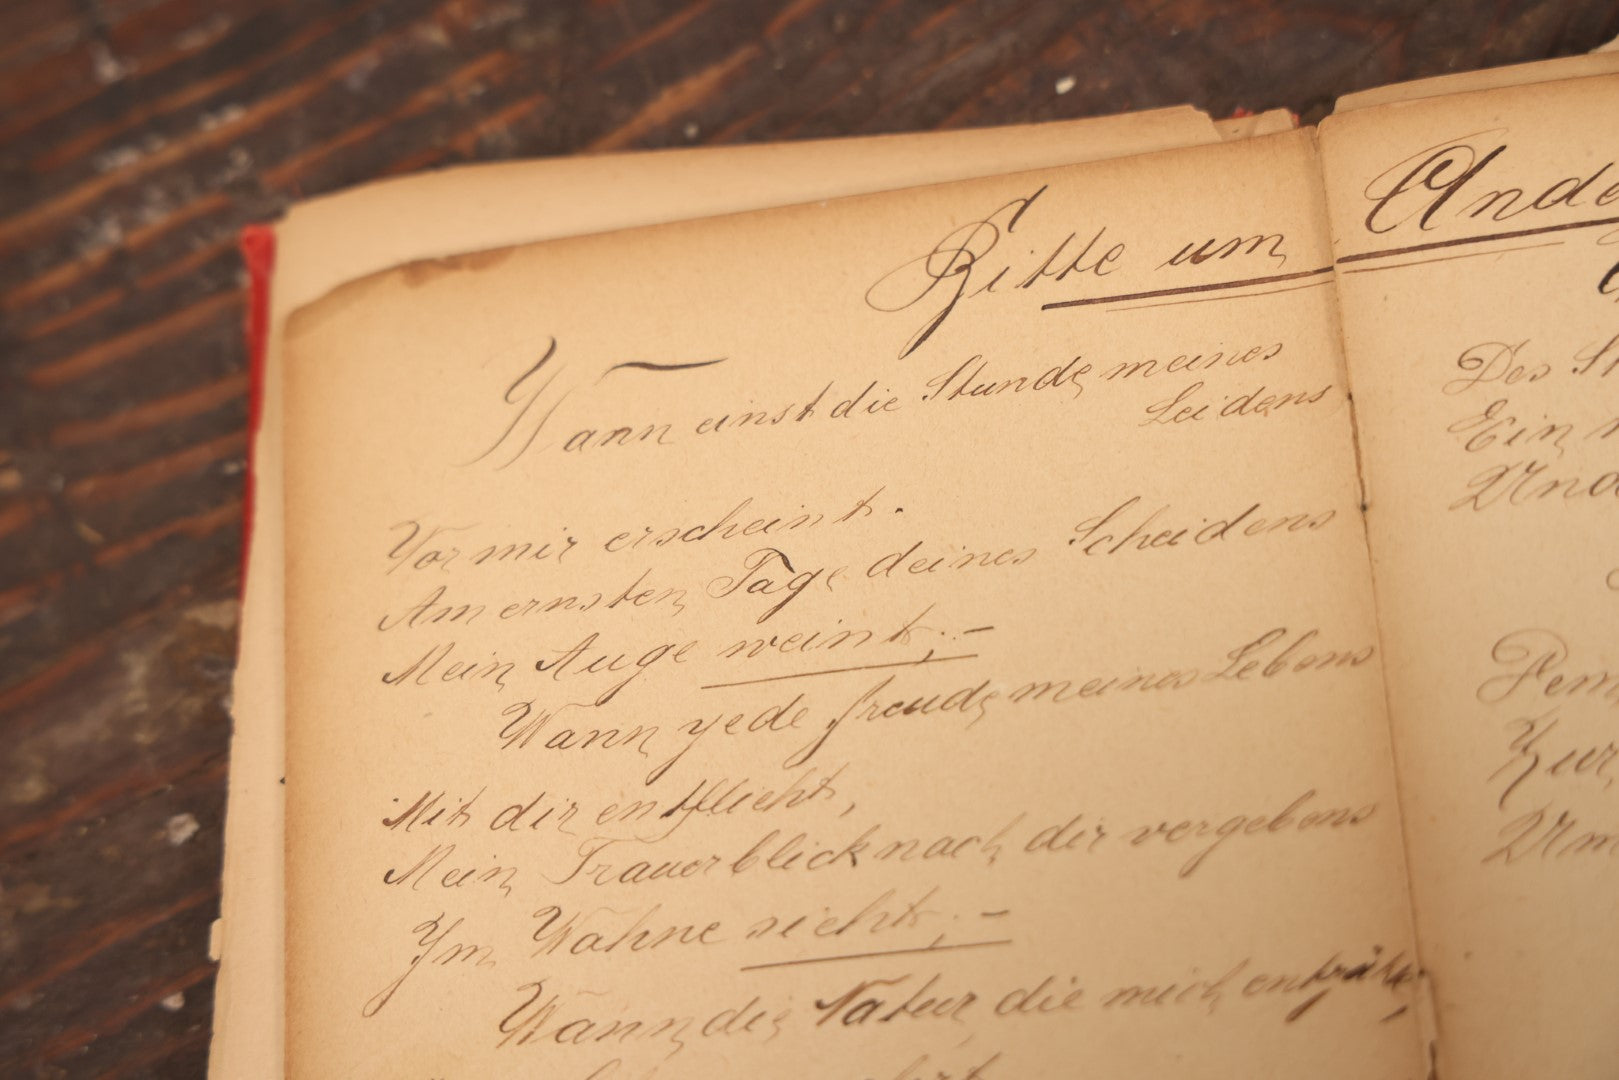 Bitte um
Wann einst die Stunde meines
Leidens
Vor mir erscheint.
Am ernsten Tage deines Scheidens
Mein Auge weint; –
Wann jede freude meines Lebens
Mit dir entflieht,
Mein Trauerblick nach dir vergebens
Im Wahne sieht; –
Wann die Natur die mich
Des
Ein